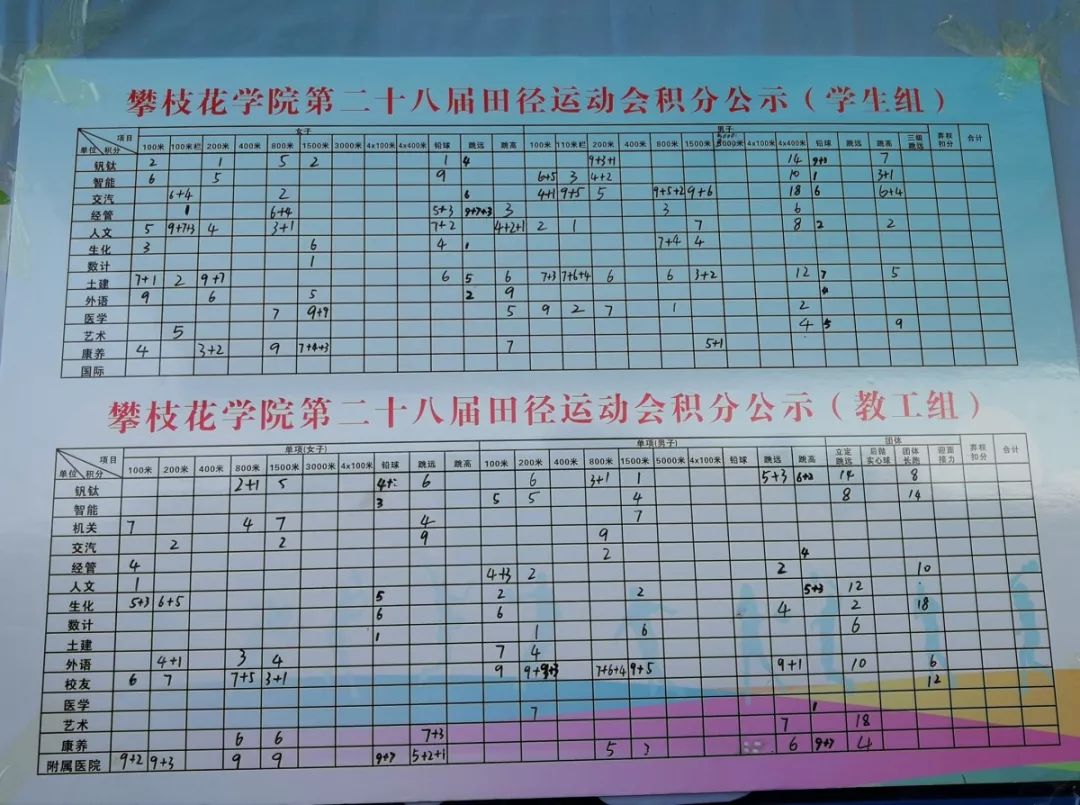 攀枝花学院第二十八届田径运动会积分公示（学生组）
项目 女子 男子 弃权扣分 合计
单位 积分 100米 100米栏 200米 400米 800米 1500米 3000米 4x100米 4x400米 铅球 跳远 跳高 100米 110米栏 200米 400米 800米 1500米 5000米 4x100米 4x400米 铅球 跳远 跳高 三级跳远
钒钛 2 1 5 2 1 4 9+3+1 14 7
智能 6 5 9 6+5 3 4+2 10 1 3+1
交汽 6+4 2 6 4+1 9+5 5 9+5+2 9+6 18 6 6+4
经管 1 6+4 5+3 9+7+3 3 3 6
人文 5 9+7+3 4 3+1 7+2 4+2+1 2 1 7 8 2 2
生化 3 6 4 1 7+4 4
数计 1
土建 7+1 2 9+7 6 5 6 7+3 7+6+4 6 6 3+2 12 7 5
外语 9 6 5 2 9
医学 7 9+9 5 9 2 7 1 2
艺术 5 4 5 9
康养 4 3+2 9 7+4+3 7 5+1
国际
攀枝花学院第二十八届田径运动会积分公示（教工组）
项目 单项(女子) 单项(男子) 团体 弃权扣分 合计
单位 积分 100米 200米 400米 800米 1500米 3000米 4x100米 铅球 跳远 跳高 100米 200米 400米 800米 1500米 5000米 4x100米 铅球 跳远 跳高 立定跳远 后抛实心球 团体长跑 迎面接力
钒钛 2+1 5 6 6 3+1 1 5+3 14 8
智能 3 5 5 4 8 14
机关 7 4 7 4 7
交汽 2 2 9 9
经管 4 2 2 4 10
人文 1 4+3 2 5+3 12
生化 5+3 6+5 5 2 2 4 2 18
数计 6 6 6
土建 1 1 6
外语 4+1 3 4 7 4 9+1 10 6
校友 6 7 7+5 3+1 9 7+6+4 9+5 12
医学 1
艺术 7 7 18
康养 6 6 7+3 6 4
附属医院 9+2 9+3 9 9 9+7 5+2+1 5